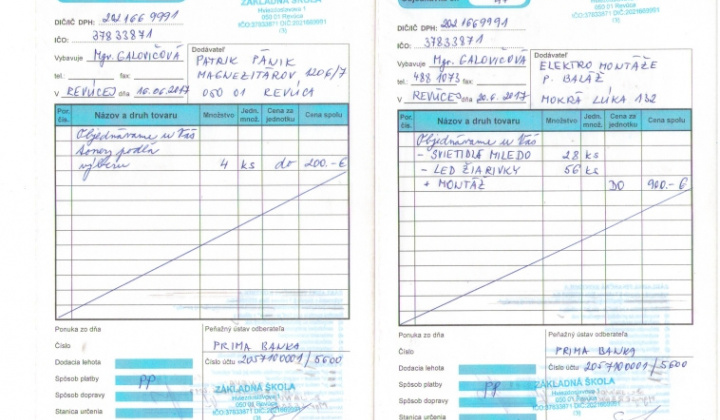 ZÁKLADNÁ ŠKOLA
050 01 Revúca
DIČ/IČ DPH: 2021669991
IČO: 37833871
Vybavuje Mgr. GALOVIČOVÁ
tel.: fax:
V REVÚCEJ dňa 16.06.2017
Dodávateľ
PATRIK PÁNIK
MAGNEZITÁROV 1206/7
050 01 REVÚCA
Por. čís. Názov a druh tovaru Množstvo Jedn. množ. Cena za jednotku Cena spolu
Objednávame u Vás
tonery podľa
výberu 4 ks do 200.-€
Ponuka zo dňa
Číslo
Dodacia lehota
Spôsob platby PP
Spôsob dopravy
Stanica určenia
Peňažný ústav odberateľa
PRIMA BANKA
Číslo účtu 2057100001/5600
ZÁKLADNÁ ŠKOLA
050 01 Revúca
DIČ/IČ DPH: 2021669991
IČO: 37833871
Vybavuje Mgr. GALOVIČOVÁ
tel.: 488 1073 fax:
V REVÚCEJ dňa 20.6.2017
Dodávateľ
ELEKTRO MONTÁŽE
P. BALÁŽ
MOKRÁ LÚKA 132
Por. čís. Názov a druh tovaru Množstvo Jedn. množ. Cena za jednotku Cena spolu
Objednávame u Vás
- SVIETIDLÁ MILEDO 28 ks
- LED ŽIARIVKY 56 ks
+ MONTÁŽ DO 900.-€
Ponuka zo dňa
Číslo
Dodacia lehota
Spôsob platby PP
Spôsob dopravy
Stanica určenia
Peňažný ústav odberateľa
PRIMA BANKA
Číslo účtu 2057100001/5600
ZÁKLADNÁ ŠKOLA
050 01 Revúca